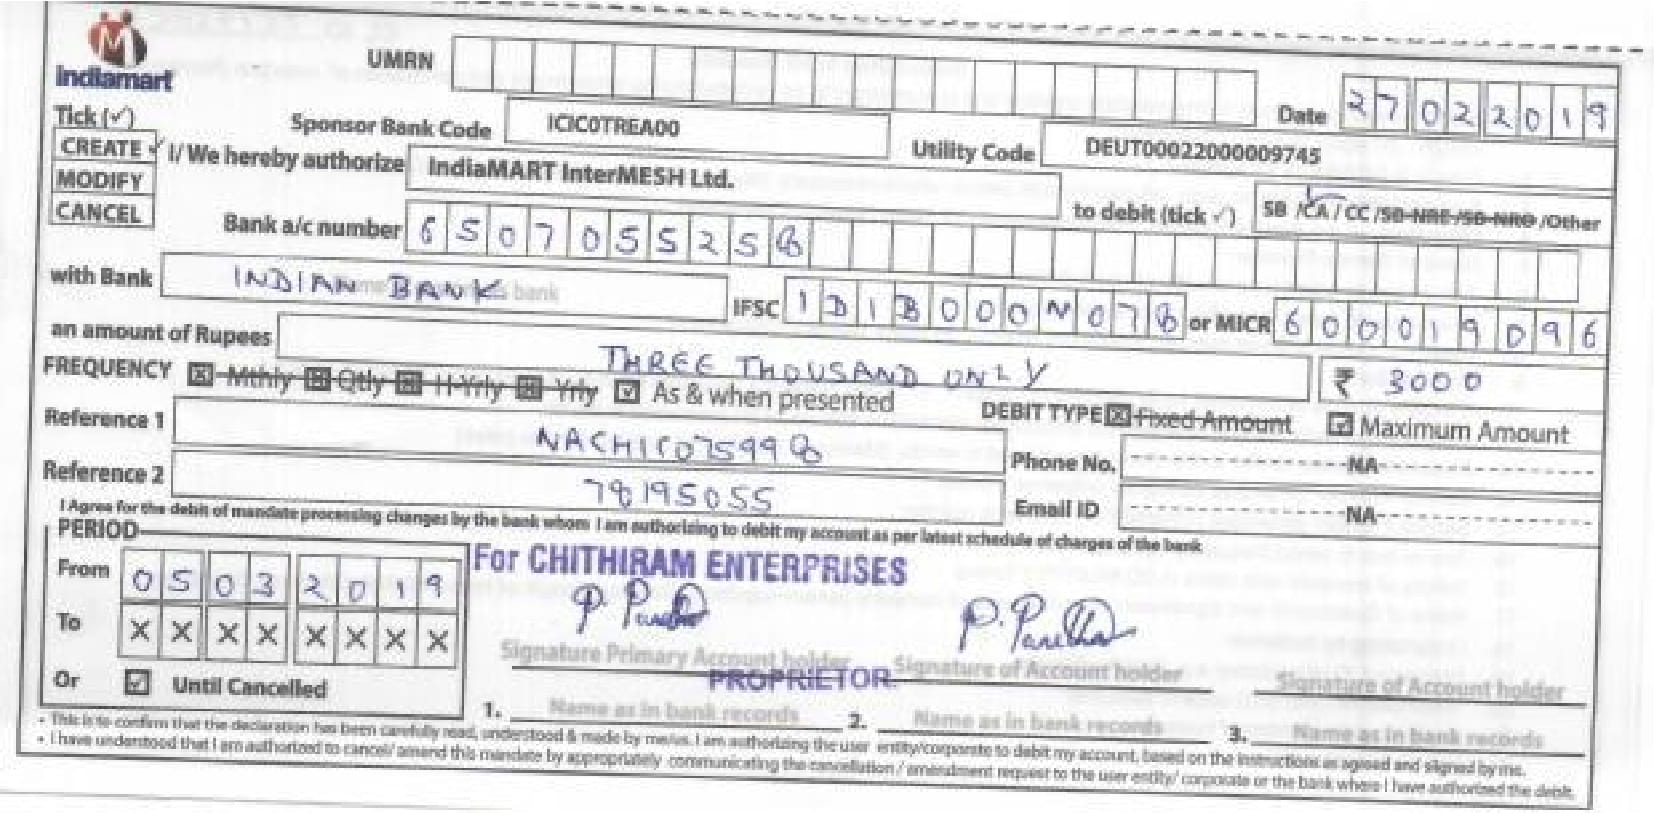 indiamart
UMRN
Date 27022019
Tick (✓)
Sponsor Bank Code ICIC0TREA00 Utility Code DEUT00022000009745
CREATE ✓
MODIFY
CANCEL
I/ We hereby authorize IndiaMART InterMESH Ltd. to debit (tick ✓) SB /CA / CC /SB-NRE /SB-NRO /Other
Bank a/c number 6507055258
with Bank INDIAN BANK IFSC IDIB000N078 or MICR 600019096
an amount of Rupees THREE THOUSAND ONLY ₹ 3000
FREQUENCY Mthly Qtly H-Yrly Yrly As & when presented DEBIT TYPE Fixed Amount Maximum Amount
Reference 1 Phone No. NA
Reference 2 78195055 Email ID NA
I Agree for the debit of mandate processing charges by the bank whom I am authorizing to debit my account as per latest schedule of charges of the bank
PERIOD
From 05032019
To XXXXXXXX
Or Until Cancelled
For CHITHIRAM ENTERPRISES
Signature Primary Account holder Signature of Account holder Signature of Account holder
PROPRIETOR.
1. Name as in bank records 2. Name as in bank records 3. Name as in bank records
• This is to confirm that the declaration has been carefully read, understood & made by me/us. I am authorizing the user entity/corporate to debit my account, based on the instructions as agreed and signed by me.
• I have understood that I am authorized to cancel/ amend this mandate by appropriately communicating the cancellation / amendment request to the user entity/ corporate or the bank where I have authorized the debit.